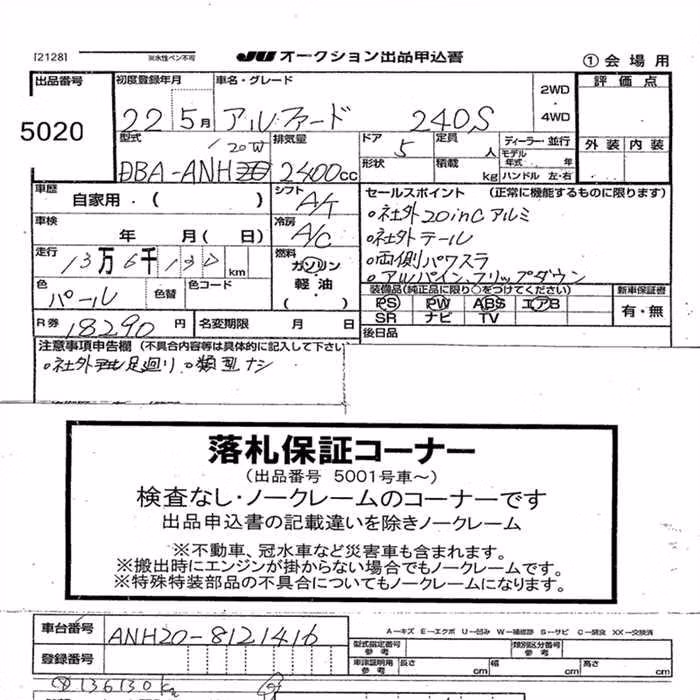 [2128] ※水性ペン不可 JU オークション出品申込書 ①会場用
出品番号 初度登録年月 車名・グレード 2WD・4WD 評価点
5020 22 5月 アルファード 240S
型式 排気量 ドア 定員 ディーラー・並行 外装 内装
DBA-ANH 20W 2400cc 5 人 モデル年式 年
形状 積載 kg ハンドル 左・右
車歴 シフト セールスポイント (正常に機能するものに限ります)
自家用・( ) A/T 。社外20inCアルミ
車検 冷房 。社外テール
年 月( 日) A/C 。両側パワスラ
走行 燃料 。アルパインフリップダウン
13万6千130km ガソリン 軽油・( )
色 色替 色コード 装備品(純正品に限り○をつけてください) 新車保証書
パール PS PW ABS エアB 有・無
SR ナビ TV
R券 18290円 名変期限 月 日 後日品
注意事項申告欄 (不具合内容等は具体的に記入して下さい
。社外 足廻り 。類型ナシ
落札保証コーナー
(出品番号 5001号車~)
検査なし・ノークレームのコーナーです
出品申込書の記載違いを除きノークレーム
※不動車、冠水車など災害車も含まれます。
※搬出時にエンジンが掛からない場合でもノークレームです。
※特殊特装部品の不具合についてもノークレームになります。
車台番号 ANH20-8121416 A-キズ E-エクボ U-凹み W-補修跡 S-サビ C-腐食 XX-交換済
型式指定番号 参考 類別区分番号 参考
登録番号 車庫証明用 参考 長さ cm 幅 cm 高さ cm
136130km